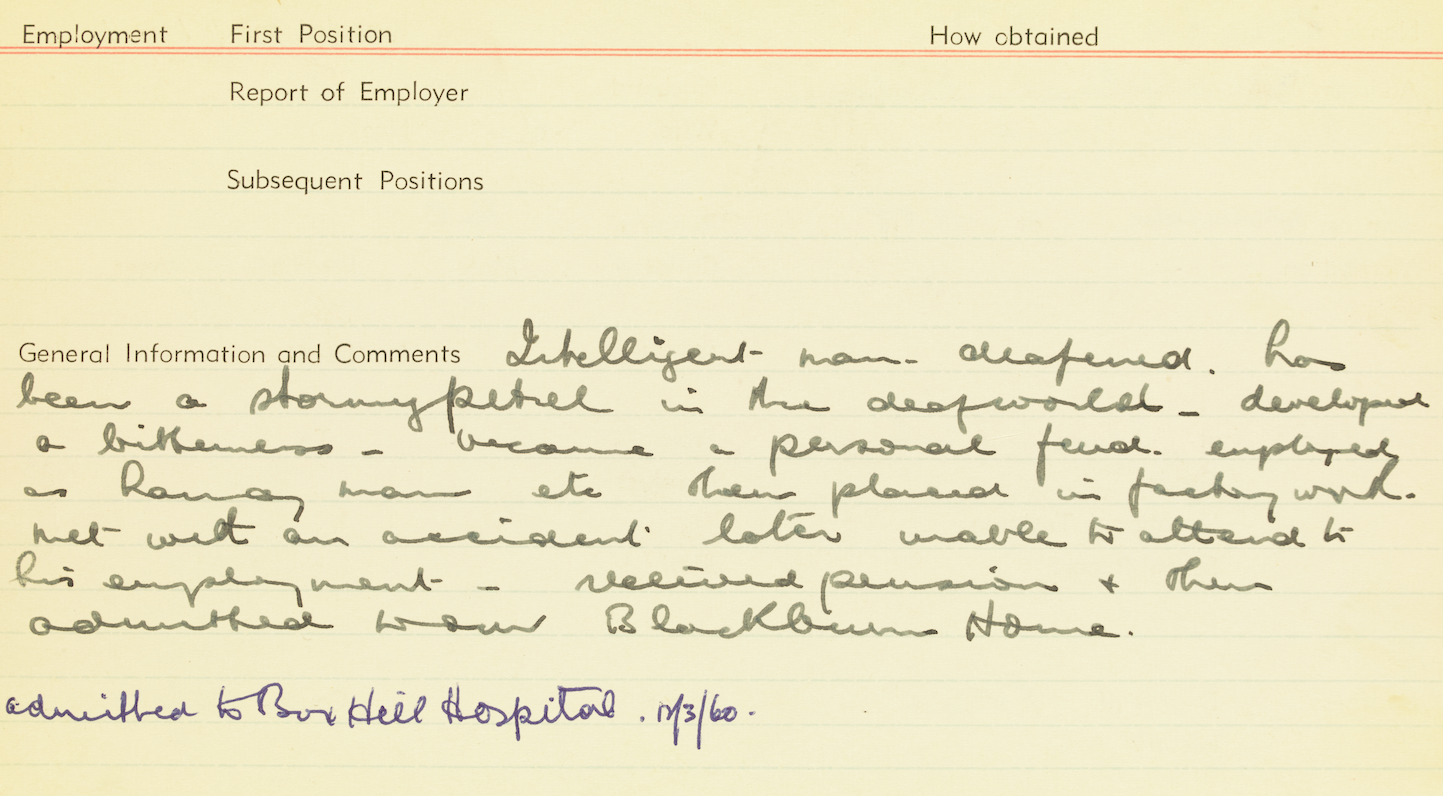 Employment First Position How obtained
Report of Employer
Subsequent Positions
General Information and Comments Intelligent man - deafened. has
been a stormy petrel in the deaf world - developed
a bitterness - became a personal feud. employed
as handy man etc then placed in factory work.
met with an accident later unable to attend to
his employment - received pension + then
admitted to our Blackburn Home.
admitted to Box Hill Hospital. /3/60.